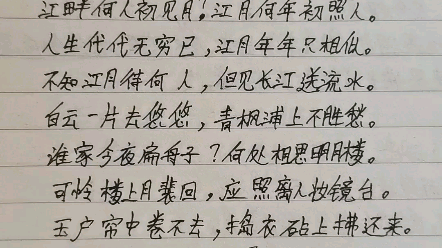 江畔何人初见月?江月何年初照人。
人生代代无穷已,江月年年只相似。
不知江月待何人,但见长江送流水。
白云一片去悠悠,青枫浦上不胜愁。
谁家今夜扁舟子?何处相思明月楼。
可怜楼上月裴回,应照离人妆镜台。
玉户帘中卷不去,捣衣砧上拂还来。